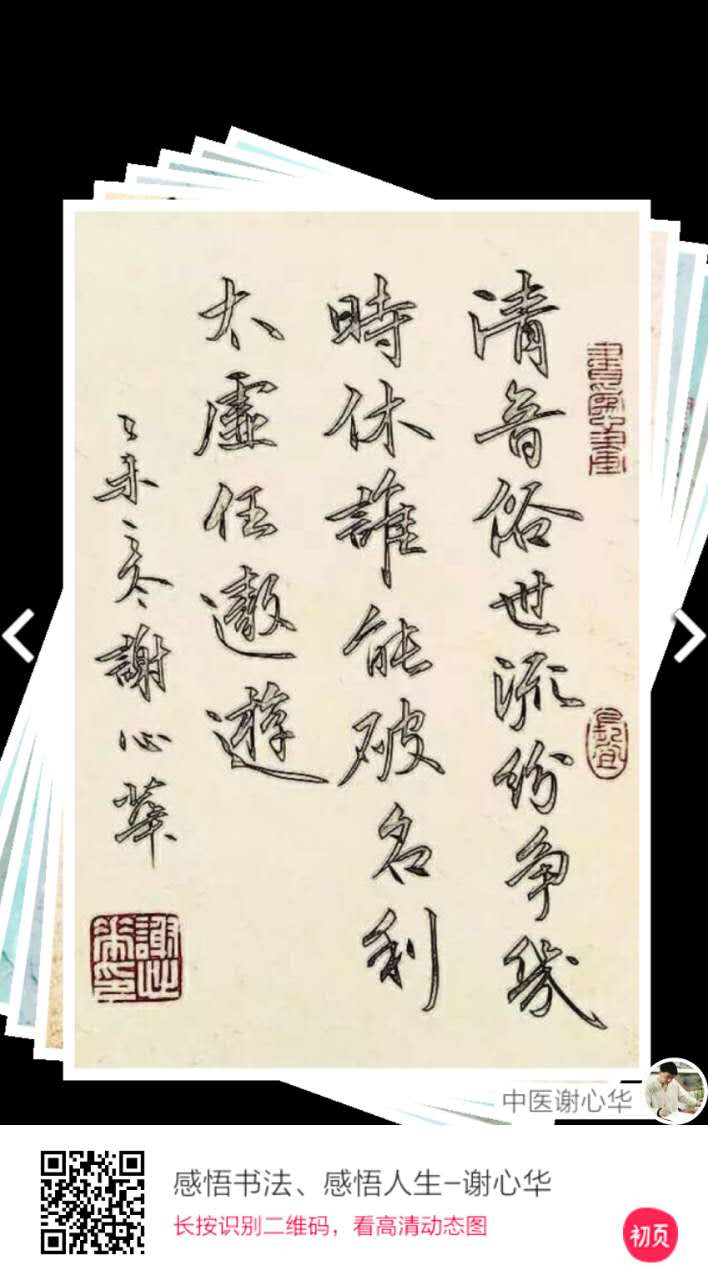 清音俗世流纷争幾
時休誰能破名利
太虛任遨遊
乙未之冬謝心華
謝心華印
中医谢心华
感悟书法、感悟人生-谢心华
长按识别二维码，看高清动态图
初页